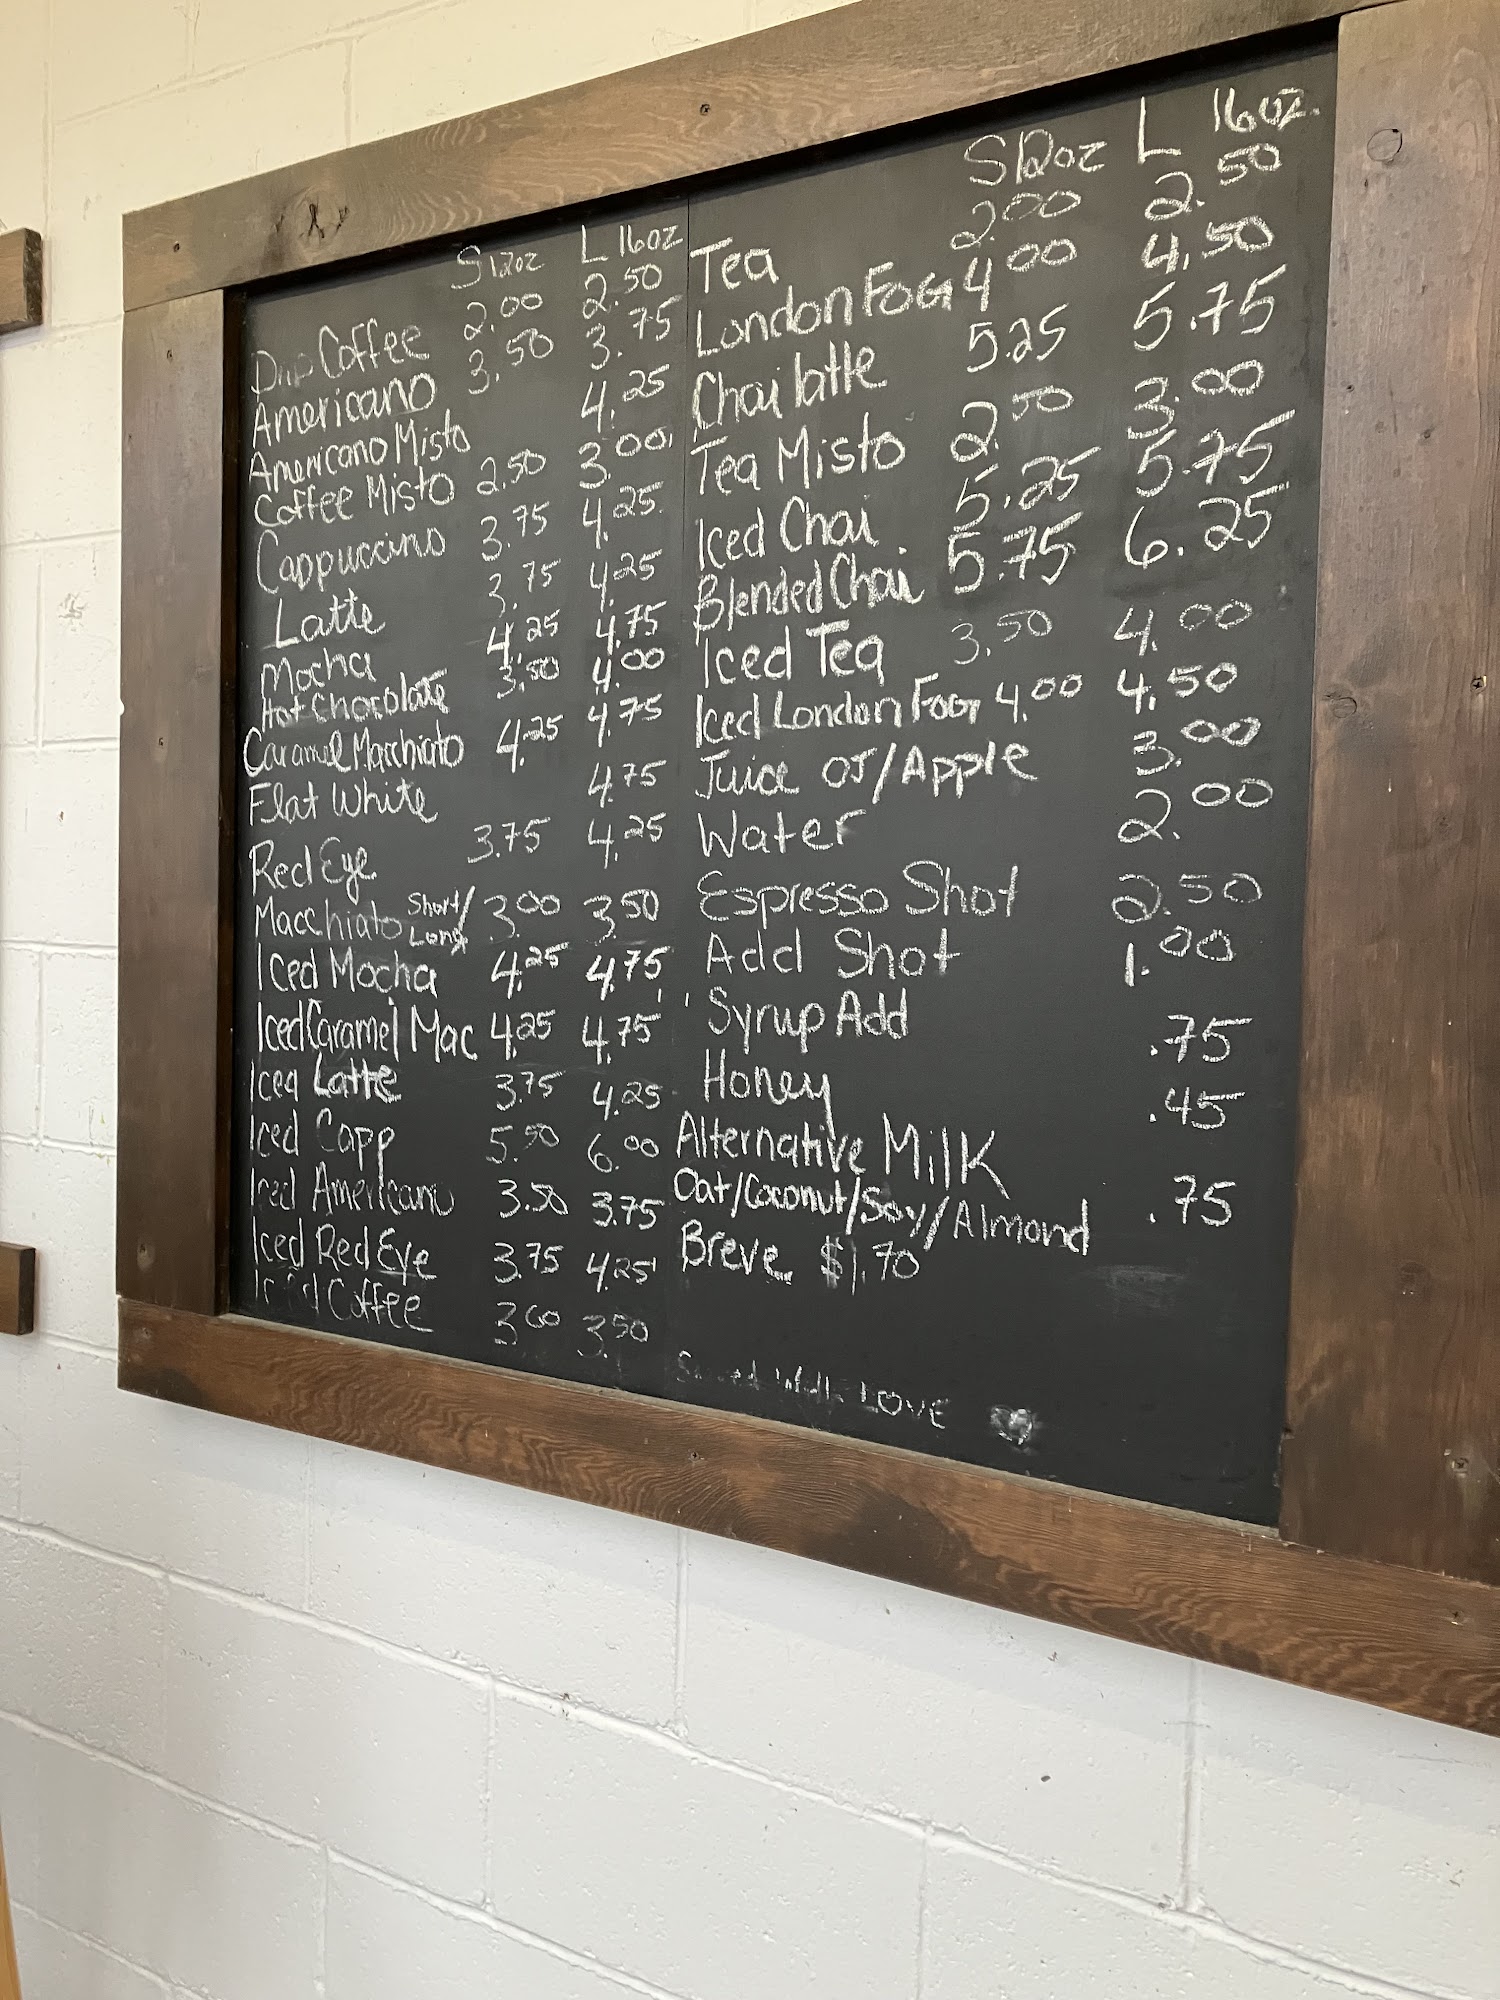 S 12oz L 16oz
Drip Coffee 2.00 2.50
Americano 3.50 3.75
Americano Misto 4.25
Coffee Misto 2.50 3.00
Cappuccino 3.75 4.25
Latte 3.75 4.25
Mocha 4.25 4.75
Hot Chocolate 3.50 4.00
Caramel Macchiato 4.25 4.75
Flat White 4.75
Red Eye 3.75 4.25
Macchiato Short/Long 3.00 3.50
Iced Mocha 4.25 4.75
Iced Caramel Mac 4.25 4.75
Iced Latte 3.75 4.25
Iced Capp 5.50 6.00
Iced Americano 3.50 3.75
Iced Red Eye 3.75 4.25
Iced Coffee 3.00 3.50
S 12oz L 16oz.
Tea 2.00 2.50
London FOG 4.00 4.50
Chai latte 5.25 5.75
Tea Misto 2.50 3.00
Iced Chai 5.25 5.75
Blended Chai 5.75 6.25
Iced Tea 3.50 4.00
Iced London FOG 4.00 4.50
Juice OJ/Apple 3.00
Water 2.00
Espresso Shot 2.50
Add Shot 1.00
Syrup Add .75
Honey .45
Alternative Milk
Oat/Coconut/Soy/Almond .75
Breve $1.70
Served With LOVE